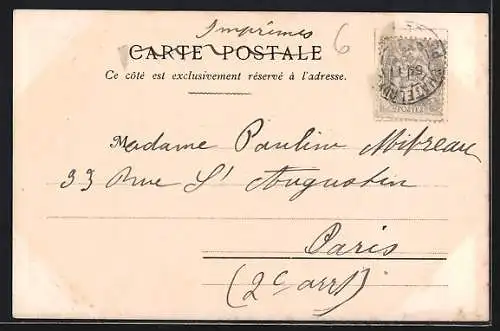 Imprimés
6
CARTE POSTALE
Ce côté est exclusivement réservé à l'adresse.
Madame Pauline Mitreau
33 Rue St Augustin
Paris
(2e arrt)
POSTES